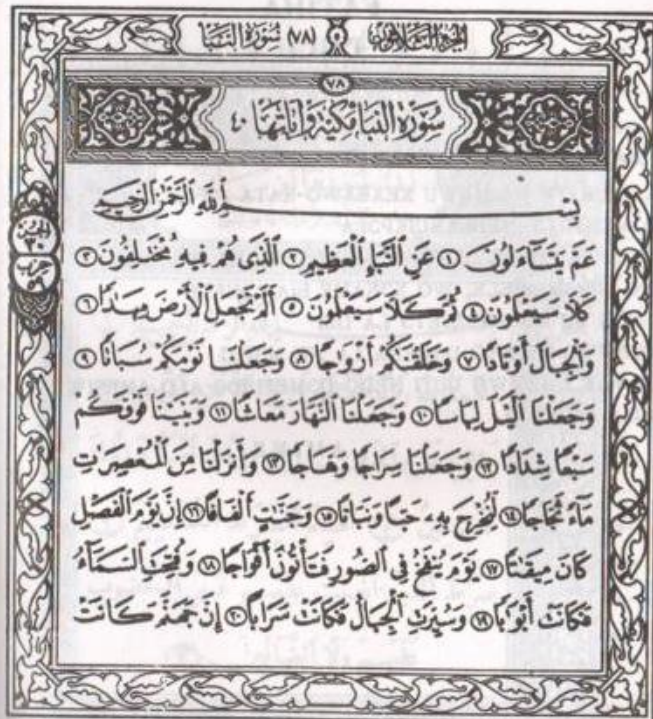 الجزء الثلاثون (٧٨) سُورَة النَّبَإ
٧٨
سُورَة النَّبَإ مَكِّيَّة وَآيَاتُهَا ٤٠
بِسْمِ ٱللَّهِ ٱلرَّحْمَٰنِ ٱلرَّحِيمِ
الجزء
٣٠
حزب
٥٩
عَمَّ يَتَسَآءَلُونَ ١ عَنِ ٱلنَّبَإِ ٱلْعَظِيمِ ٢ ٱلَّذِى هُمْ فِيهِ مُخْتَلِفُونَ ٣
كَلَّا سَيَعْلَمُونَ ٤ ثُمَّ كَلَّا سَيَعْلَمُونَ ٥ أَلَمْ نَجْعَلِ ٱلْأَرْضَ مِهَٰدًا ٦
وَٱلْجِبَالَ أَوْتَادًا ٧ وَخَلَقْنَٰكُمْ أَزْوَٰجًا ٨ وَجَعَلْنَا نَوْمَكُمْ سُبَاتًا ٩
وَجَعَلْنَا ٱلَّيْلَ لِبَاسًا ١٠ وَجَعَلْنَا ٱلنَّهَارَ مَعَاشًا ١١ وَبَنَيْنَا فَوْقَكُمْ
سَبْعًا شِدَادًا ١٢ وَجَعَلْنَا سِرَاجًا وَهَّاجًا ١٣ وَأَنزَلْنَا مِنَ ٱلْمُعْصِرَٰتِ
مَآءً ثَجَّاجًا ١٤ لِّنُخْرِجَ بِهِۦ حَبًّا وَنَبَاتًا ١٥ وَجَنَّٰتٍ أَلْفَافًا ١٦ إِنَّ يَوْمَ ٱلْفَصْلِ
كَانَ مِيقَٰتًا ١٧ يَوْمَ يُنفَخُ فِى ٱلصُّورِ فَتَأْتُونَ أَفْوَاجًا ١٨ وَفُتِحَتِ ٱلسَّمَآءُ
فَكَانَتْ أَبْوَٰبًا ١٩ وَسُيِّرَتِ ٱلْجِبَالُ فَكَانَتْ سَرَابًا ٢٠ إِنَّ جَهَنَّمَ كَانَتْ